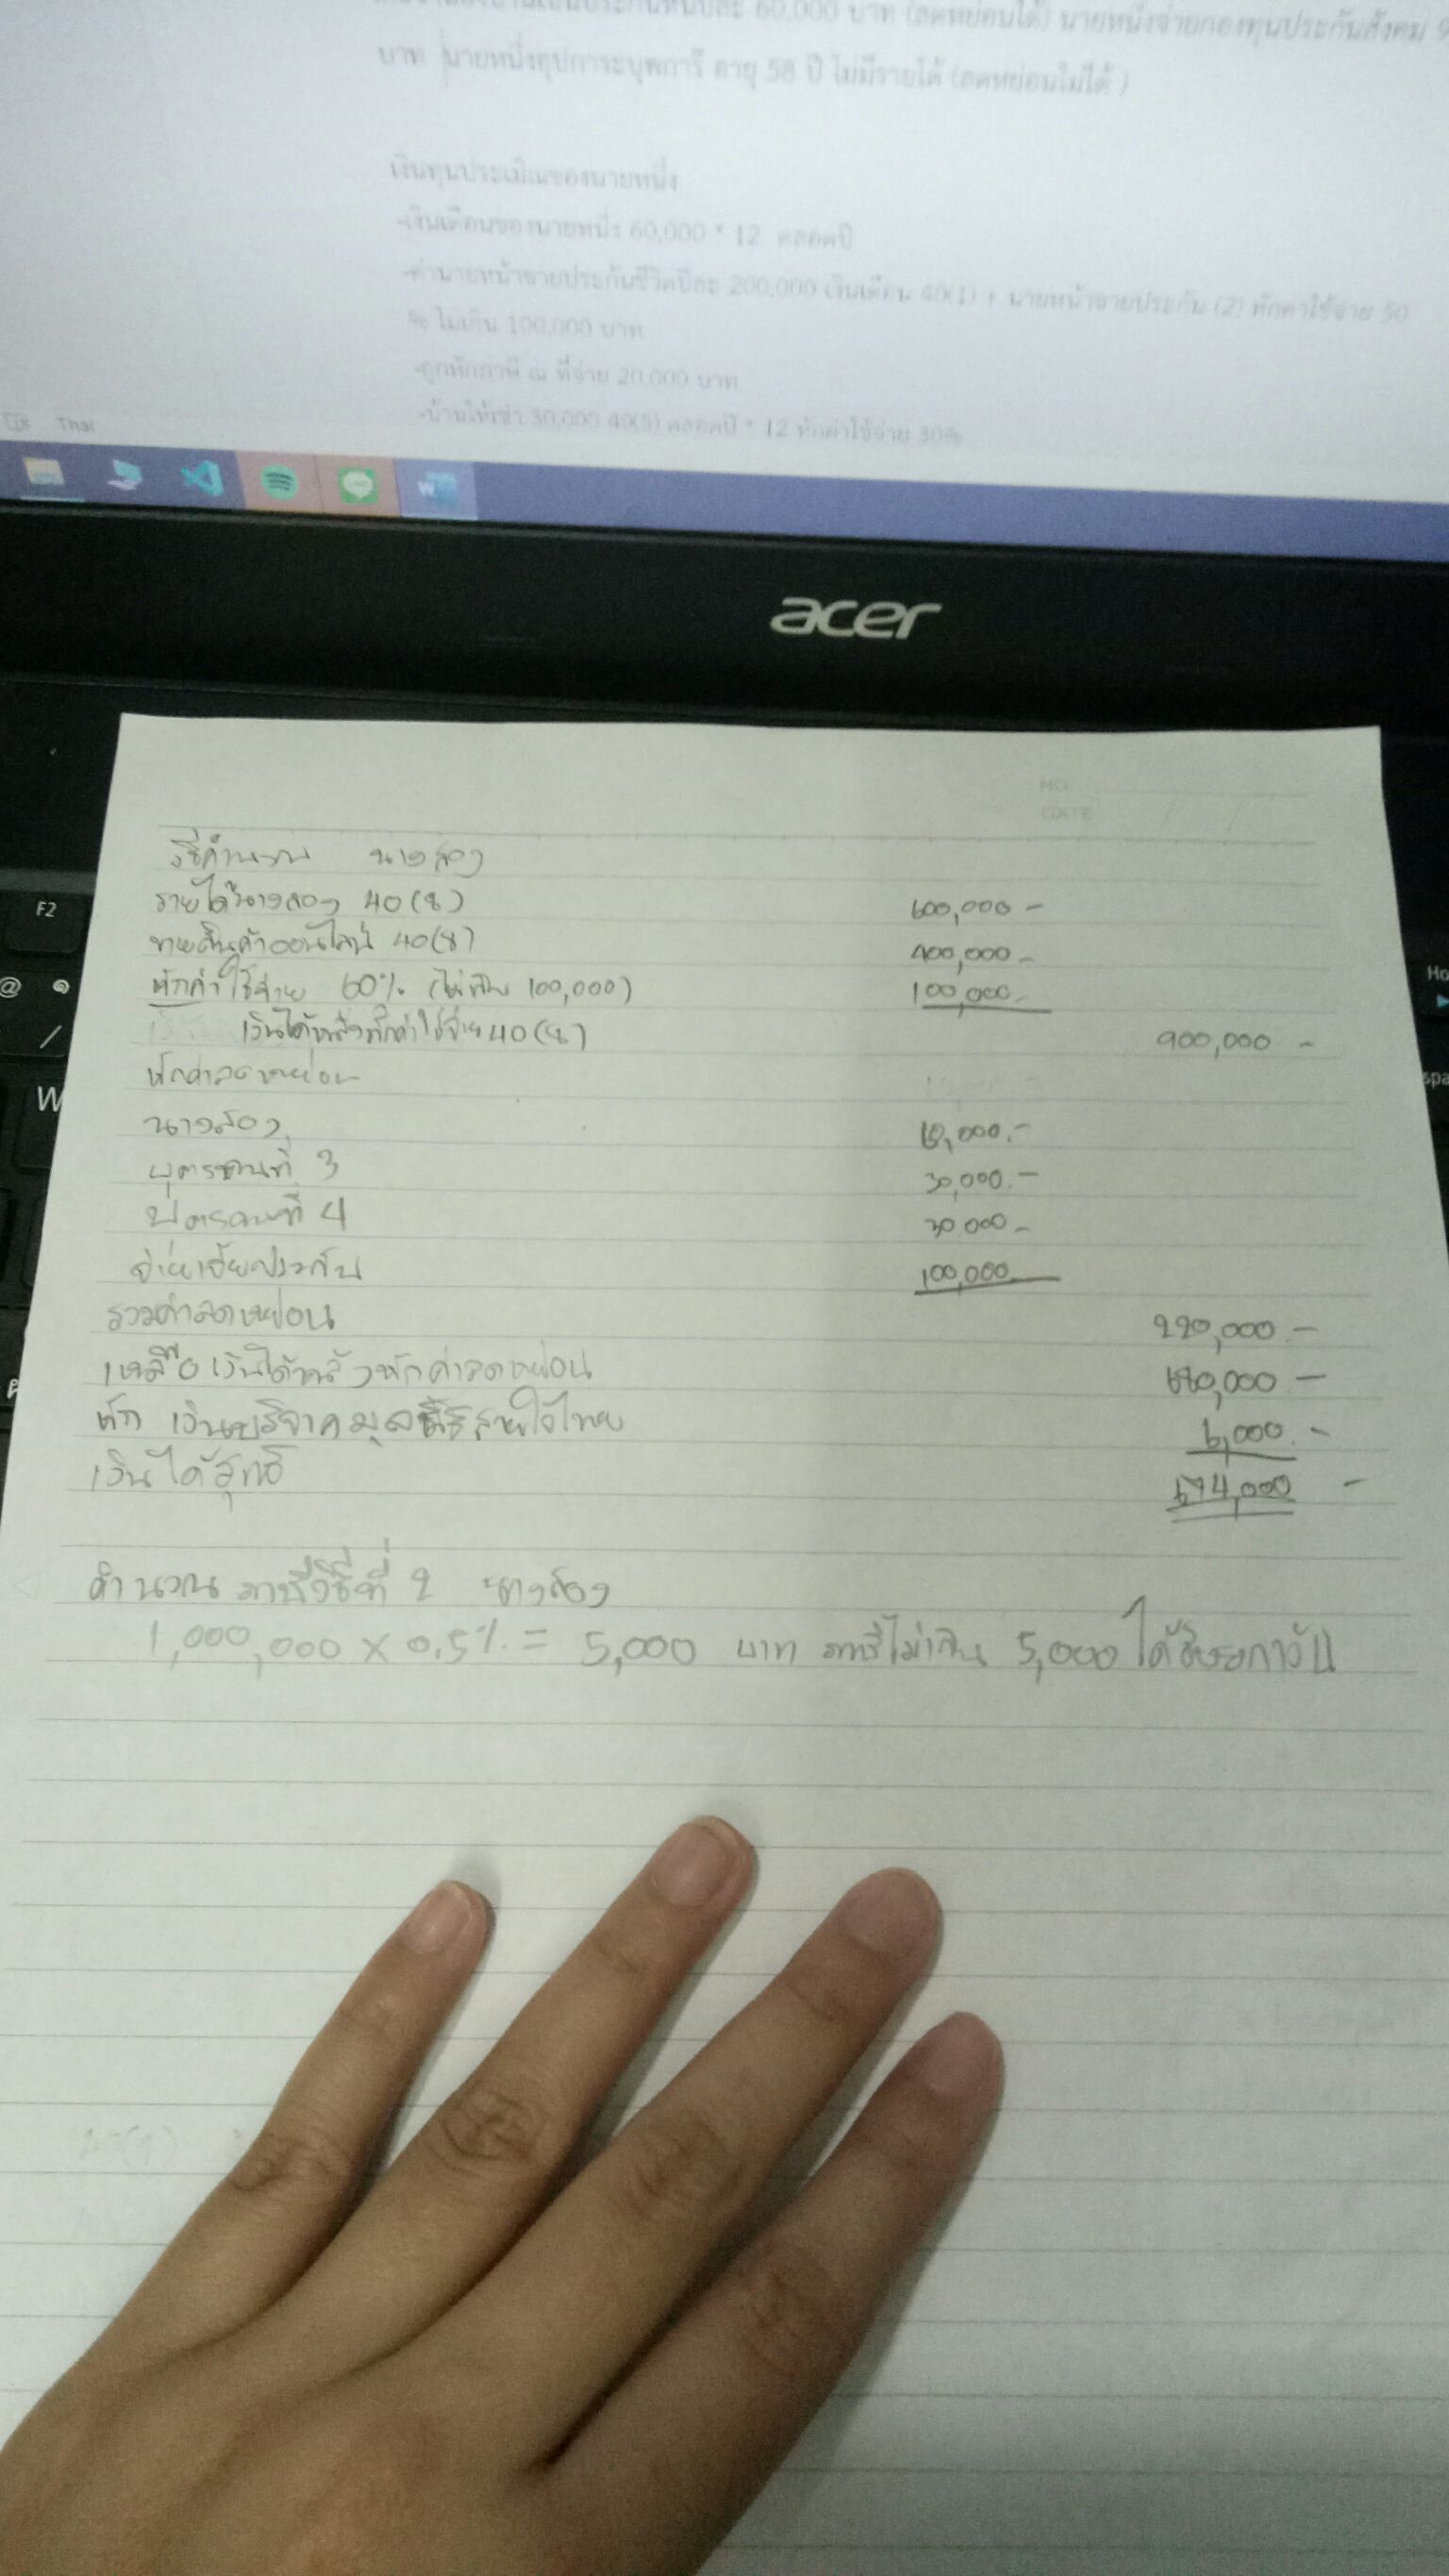 60,000 บาท (ลดหย่อนได้) นายหนึ่งจ่ายกองทุนประกันสังคม 9
บาท นายหนึ่งอุปการะบุพการี อายุ 58 ปี ไม่มีรายได้ (ลดหย่อนไม่ได้ )
เงินทุนประเมินของนายหนึ่ง
-เงินเดือนของนายหนึ่ง 60,000 * 12 ตลอดปี
-ค่านายหน้าขายประกันชีวิตปีละ 200,000 เงินเดือน 40(1) + นายหน้าขายประกัน (2) หักค่าใช้จ่าย 50
% ไม่เกิน 100,000 บาท
-ถูกหักภาษี ณ ที่จ่าย 20,000 บาท
-บ้านให้เช่า 30,000 40(5) ตลอดปี * 12 หักค่าใช้จ่าย 30%
Thai
acer
NO
DATE
วิธีคำนวณ นางสอง
รายได้นางสอง 40(8) 600,000 -
ขายสินค้าออนไลน์ 40(8) 400,000 -
หักค่าใช้จ่าย 60% (ไม่เกิน 100,000) 100,000 -
เงินได้หลังหักค่าใช้จ่าย 40(8) 900,000 -
หักค่าลดหย่อน
นางสอง 60,000.-
บุตรคนที่ 3 30,000.-
บุตรคนที่ 4 30,000 -
จ่ายเบี้ยประกัน 100,000
รวมค่าลดหย่อน 220,000 -
เหลือเงินได้หลังหักค่าลดหย่อน 680,000 -
หัก เงินบริจาคมูลนิธิสายใจไทย 6,000.-
เงินได้สุทธิ 674,000 -
คำนวณ ภาษีวิธีที่ 2 นางสอง
1,000,000 x 0.5% = 5,000 บาท ภาษีไม่เกิน 5,000 ได้รับยกเว้น
F2
@
/
W
Ho
spa